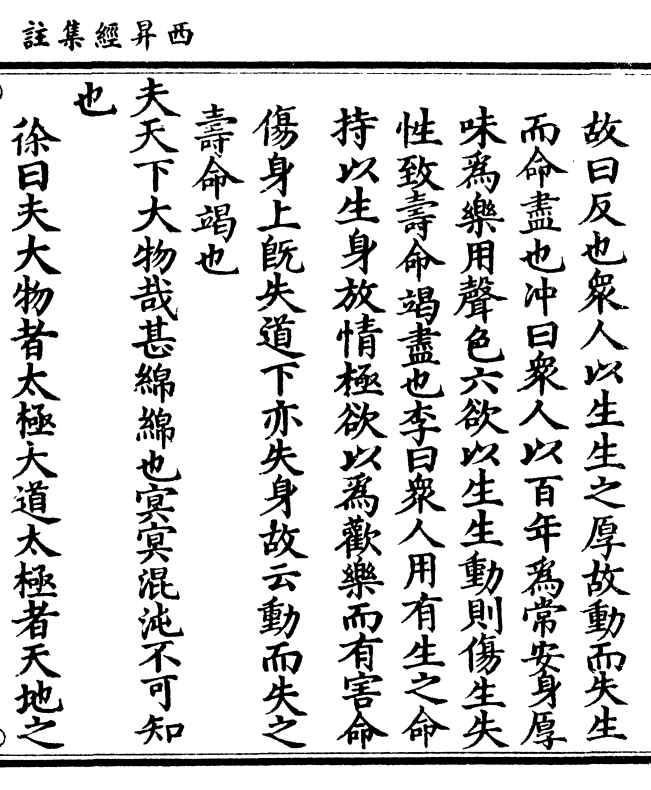 西昇經集註
故曰反也衆人以生生之厚故動而失生
而命盡也冲曰衆人以百年爲常安身厚
味爲樂用聲色六欲以生生動則傷生失
性致壽命竭盡也李曰衆人用有生之命
持以生身放情極欲以爲歡樂而有害命
傷身上既失道下亦失身故云動而失之
壽命竭也
夫天下大物哉甚綿綿也冥冥混沌不可知
也
徐曰夫大物者太極大道太極者天地之